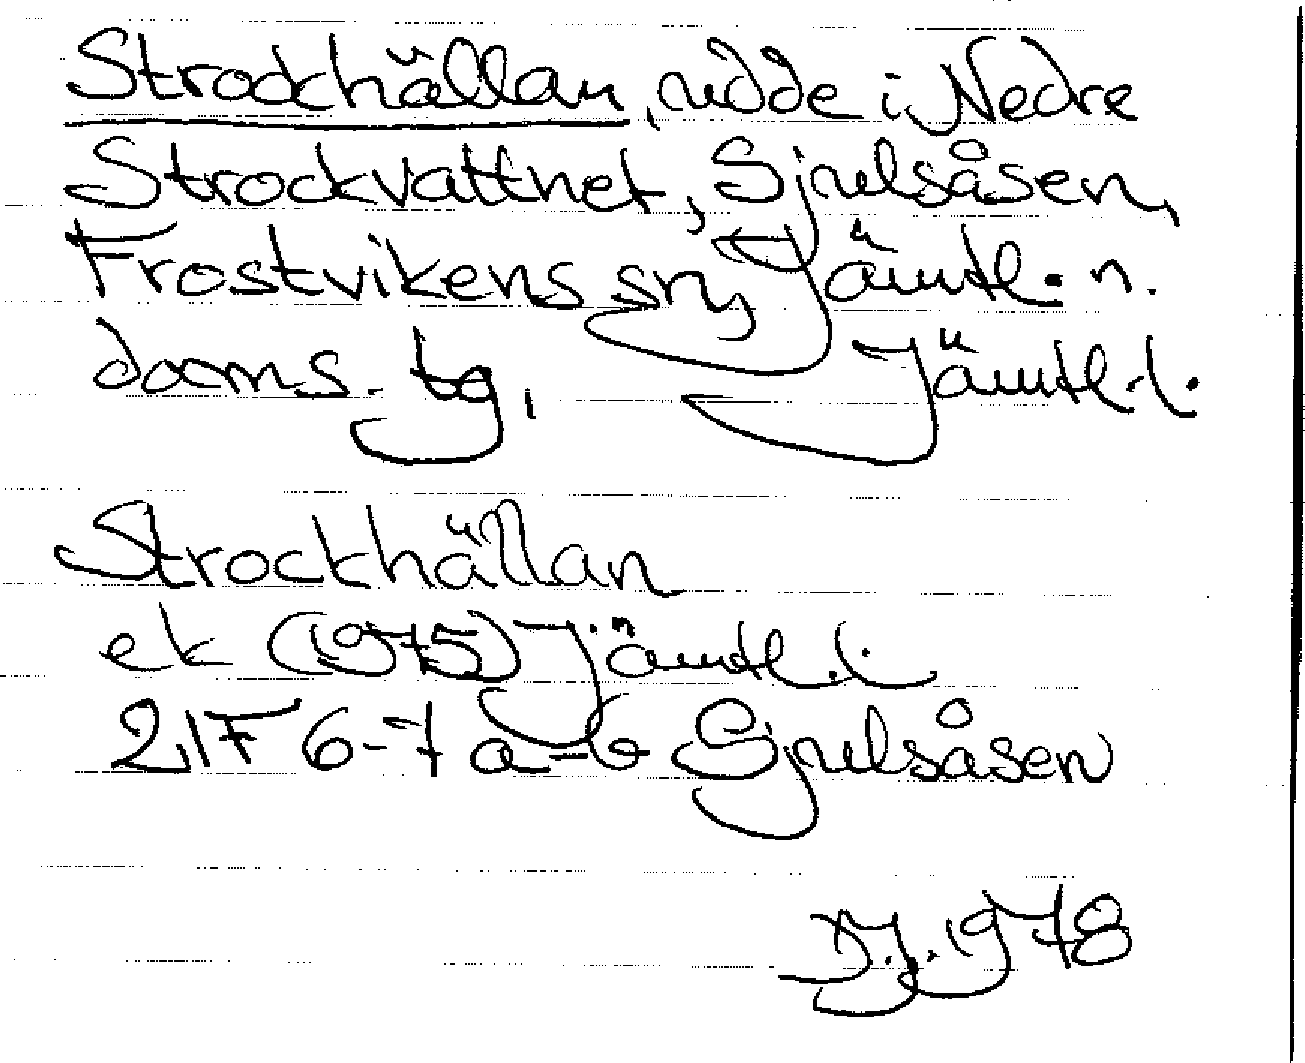 Strockhällan, udde i Nedre
Strockvattnet, Sjulsåsen,
Frostvikens sn, Jämtl. n.
doms. tg, Jämtl. l.
Strockhällan
ek (1975) Jämtl. l.
21F 6-7 a-b Sjulsåsen
D.J. 1978